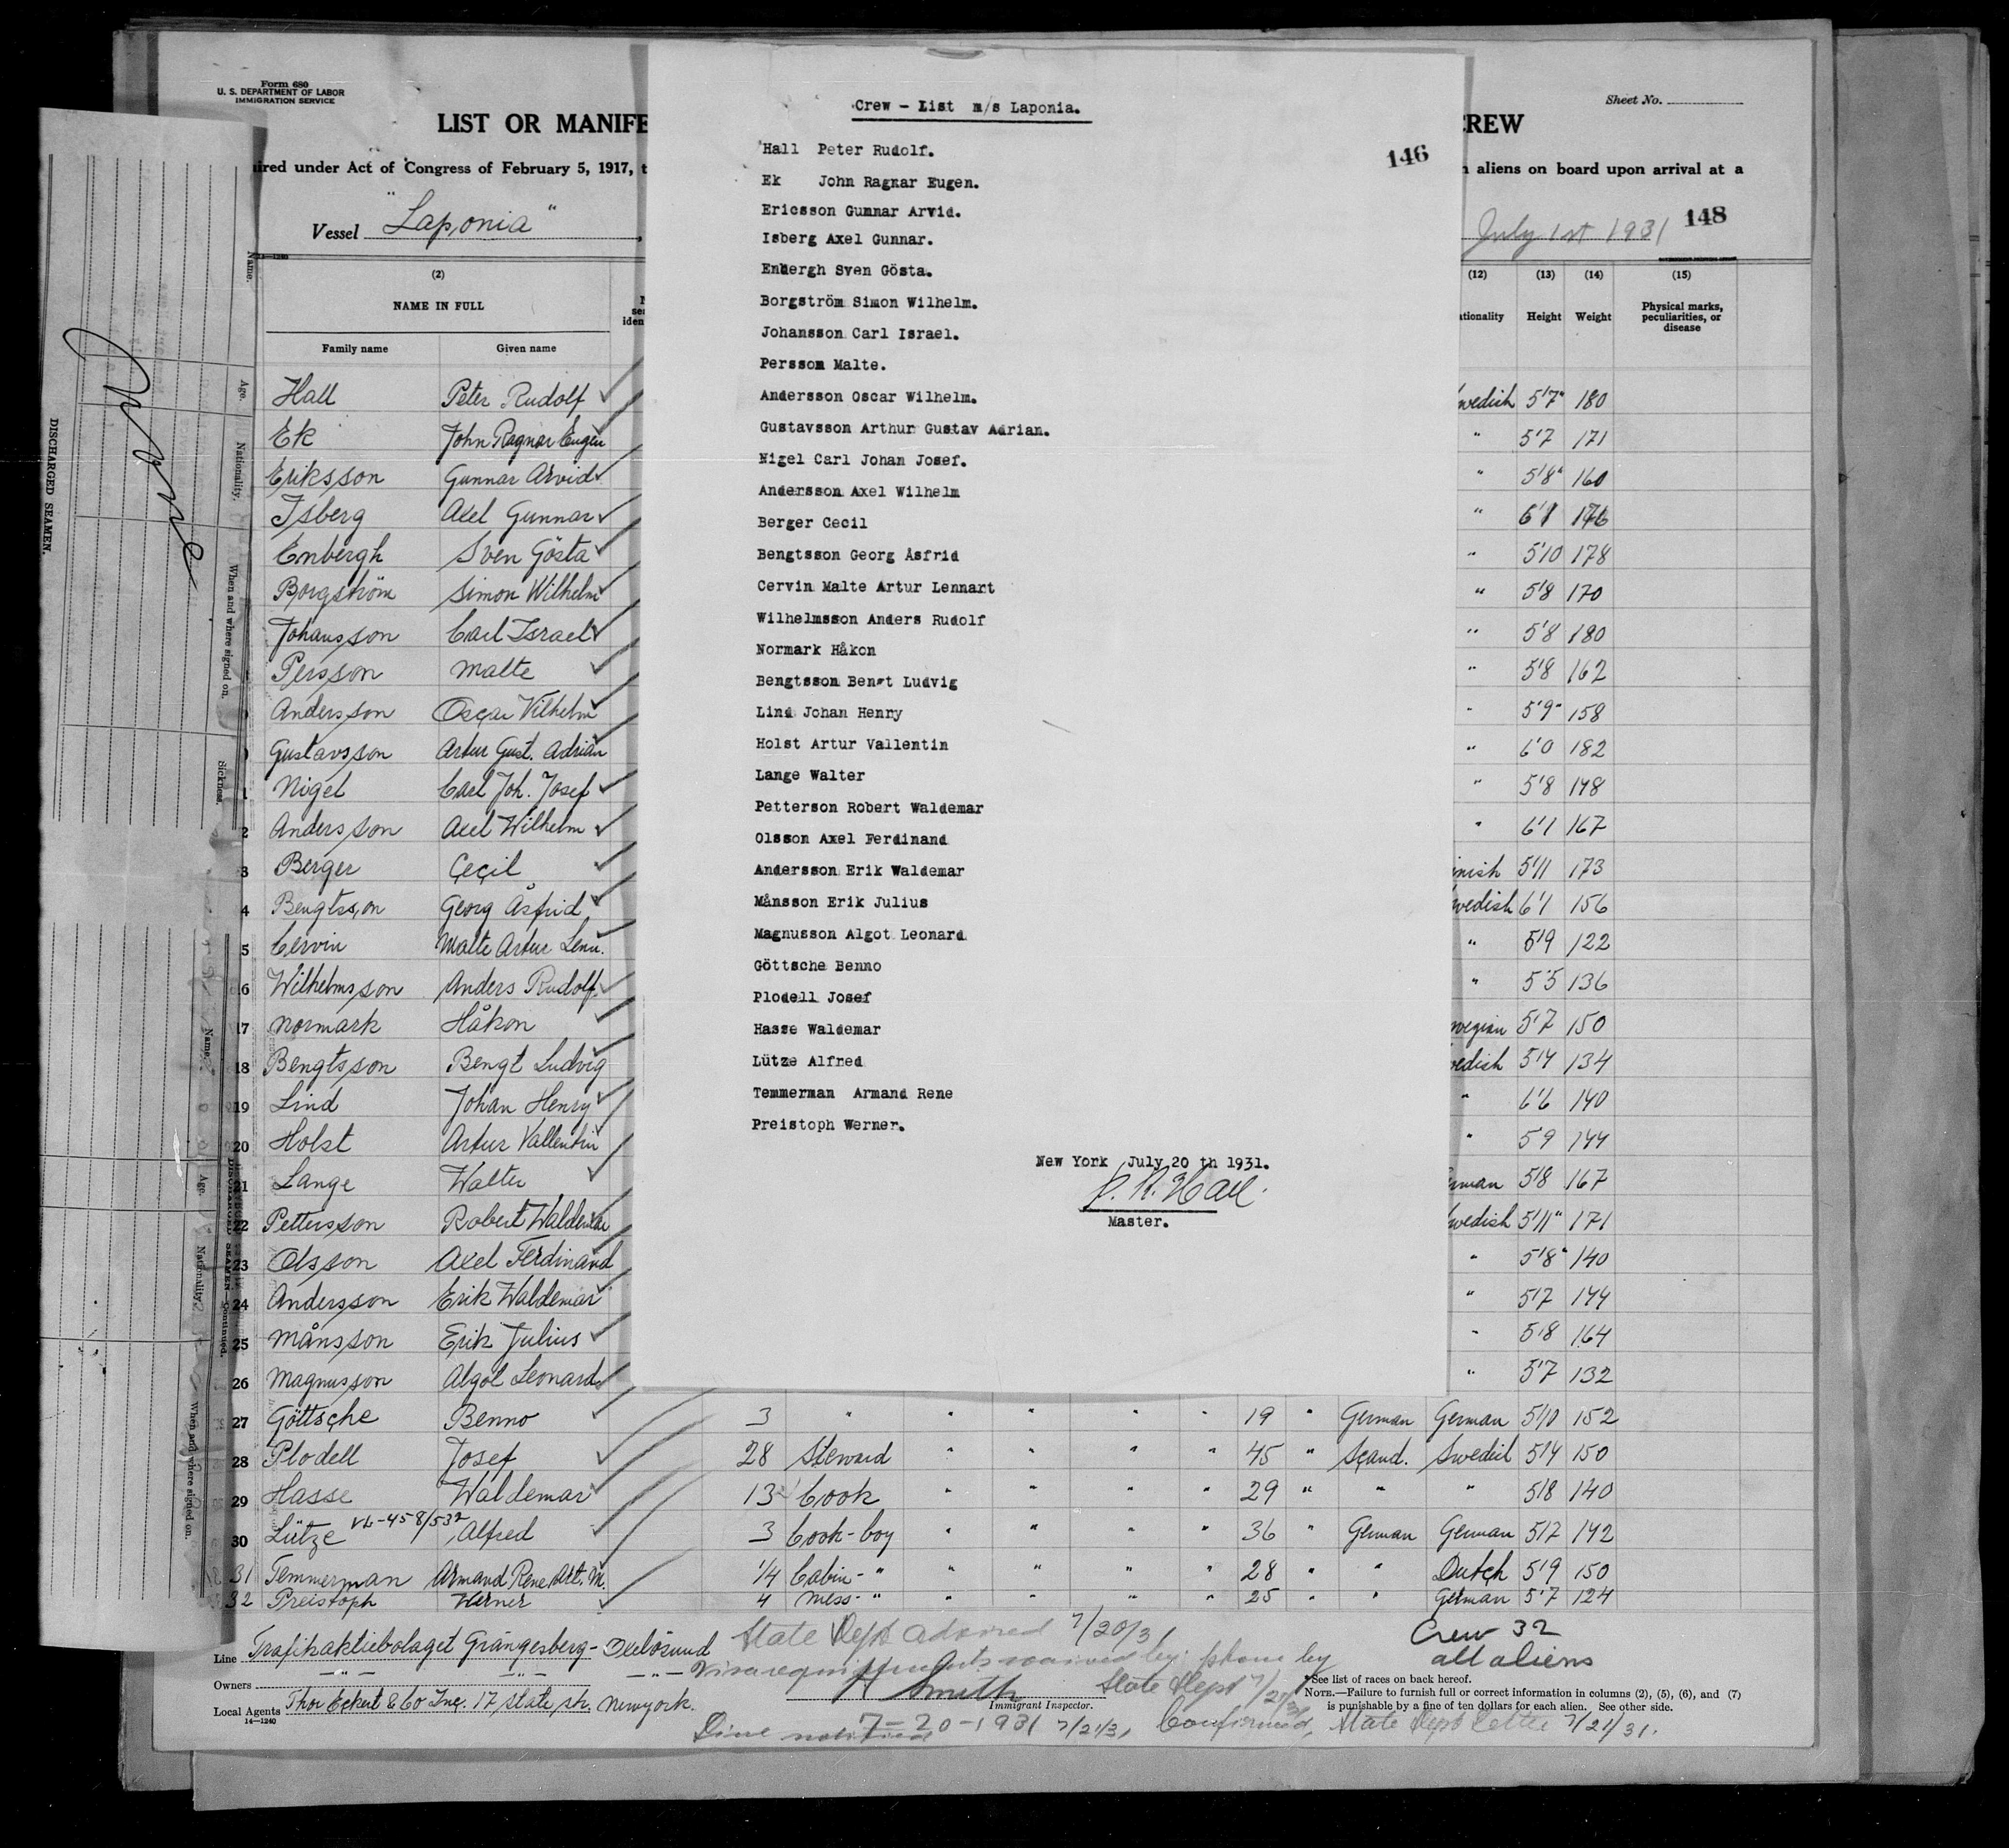 Form 680
U. S. DEPARTMENT OF LABOR
IMMIGRATION SERVICE
Sheet No.
LIST OR MANIFE
CREW
ired under Act of Congress of February 5, 1917, t
aliens on board upon arrival at a
Vessel "Laponia"
July 1st 1931
148
(2)
NAME IN FULL
Family name Given name
(12) (13) (14) (15)
ationality Height Weight Physical marks, peculiarities, or disease
Crew - List m/s Laponia.
146
Hall Peter Rudolf.
Ek John Ragnar Eugen.
Ericsson Gunnar Arvid.
Isberg Axel Gunnar.
Enbergh Sven Gösta.
Borgström Simon Wilhelm.
Johansson Carl Israel.
Persson Malte.
Andersson Oscar Wilhelm.
Gustavsson Arthur Gustav Adrian.
Nigel Carl Johan Josef.
Andersson Axel Wilhelm
Berger Cecil
Bengtsson Georg Åsfrid
Cervin Malte Artur Lennart
Wilhelmsson Anders Rudolf
Normark Håkon
Bengtsson Bengt Ludvig
Lind Johan Henry
Holst Artur Vallentin
Lange Walter
Petterson Robert Waldemar
Olsson Axel Ferdinand
Andersson Erik Waldemar
Månsson Erik Julius
Magnusson Algot Leonard
Göttsche Benno
Plodell Josef
Hasse Waldemar
Lütze Alfred
Temmerman Armand Rene
Preistoph Werner.
New York July 20 th 1931.
P. R. Hall.
Master.
Hall Peter Rudolf wedish 5'7" 180
Ek John Ragnar Eugen " 5'7 171
Eriksson Gunnar Arvid " 5'8" 160
Isberg Axel Gunnar " 6'1 176
Enbergh Sven Gösta " 5'10 178
Borgström Simon Wilhelm " 5'8 170
Johansson Carl Israel " 5'8 180
Persson Malte " 5'8 162
Andersson Oscar Vilhelm " 5'9" 158
Gustavsson Artur Gust. Adrian " 6'0 182
1 Nigel Carl Joh. Josef " 5'8 148
2 Andersson Axel Wilhelm " 6'1 167
3 Berger Cecil inish 5'11 173
4 Bengtsson Georg Åsfrid wedish 6'1 156
5 Cervin Malte Artur Lenn. " 5'9 122
6 Wilhelmsson Anders Rudolf " 5'5 136
17 Normark Håkon wegian 5'7 150
18 Bengtsson Bengt Ludvig wedish 5'4 134
19 Lind Johan Henry " 6'6 140
20 Holst Artur Vallentin " 5'9 144
21 Lange Walter erman 5'8 167
22 Pettersson Robert Waldemar wedish 5'11" 171
23 Olsson Axel Ferdinand " 5'8" 140
24 Andersson Erik Waldemar " 5'7 144
25 Månsson Erik Julius " 5'8 164
26 Magnusson Algot Leonard " 5'7 132
27 Göttsche Benno 3 " " " " " 19 " German German 5'10 152
28 Plodell Josef 28 Steward " " " " 45 " Scand. Swedish 5'4 150
29 Hasse Waldemar 13 Cook " " " " 29 " " " 5'8 140
30 Lütze VL-458/532 Alfred 3 Cook-boy " " " " 36 " German German 5'7 142
31 Temmerman Armand Rene Alt. M. 1/4 Cabin-" " " " " 28 " " Dutch 5'9 150
32 Preistoph Werner 4 Mess-" " " " " 25 " " German 5'7 124
Line Trafikaktiebolaget Grängesberg-Oxelösund
Owners
Local Agents Thor Eckert & Co Inc. 17 State str. Newyork.
14—1240
State Dept advised 7/20/31
Visa requirements waived by phone by State Dept 7/21/31
Smith
Immigrant Inspector.
7-20-1931
Line notified 7/21/31 Confirmed, State Dept Letter 7/21/31.
Crew 32
all aliens
*See list of races on back hereof.
NOTE.—Failure to furnish full or correct information in columns (2), (5), (6), and (7)
is punishable by a fine of ten dollars for each alien. See other side.
DISCHARGED SEAMEN.
Name. Age. Nationality. When and where signed on. Sickness.
None
DISCHARGED SEAMEN—Continued.
Name. Age. Nationality. When and where signed on.